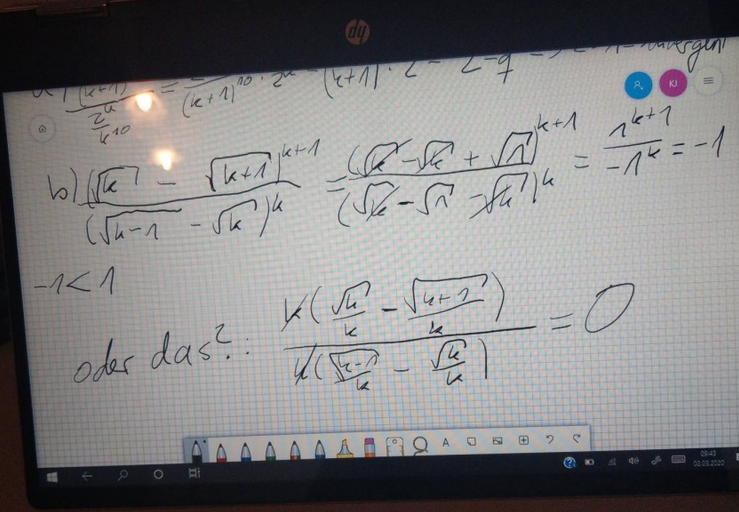 hp
KJ
((k+1)^10 / 2^k/k^10) = /(k+1)^10 · 2^k (k+1) · 2 - 2 - q
b) (√k - √(k+1))^(k+1) / (√(k-1) - √k)^k = (√k - √k + √1)^(k+1) / (√k - √1 - √k)^k = 1^(k+1) / -1^k = -1
-1 < 1
oder das?: k(√k/k - √(k+1)/k) / k(√(k-1)/k - √k/k) = 0
A
09:43
02.03.2020